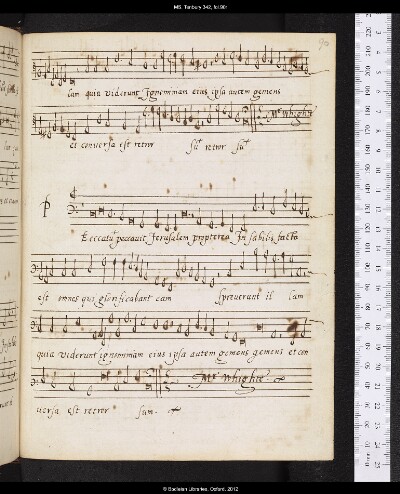 MS. Tenbury 342, fol.90r
90
lam quia viderunt Ignominiam eius ipsa autem gemens
Mr Whighte
et conversa est retror su retror su
P
Eccatu peccavit Jerusalem propterea Instabilis facta
est omnes qui glorificabant eam spreverunt il lam
quia viderunt ignominiam eius ipsa autem gemens gemens et con
Mr Whighte
uersa est retror sum.
© Bodleian Libraries, Oxford, 2012